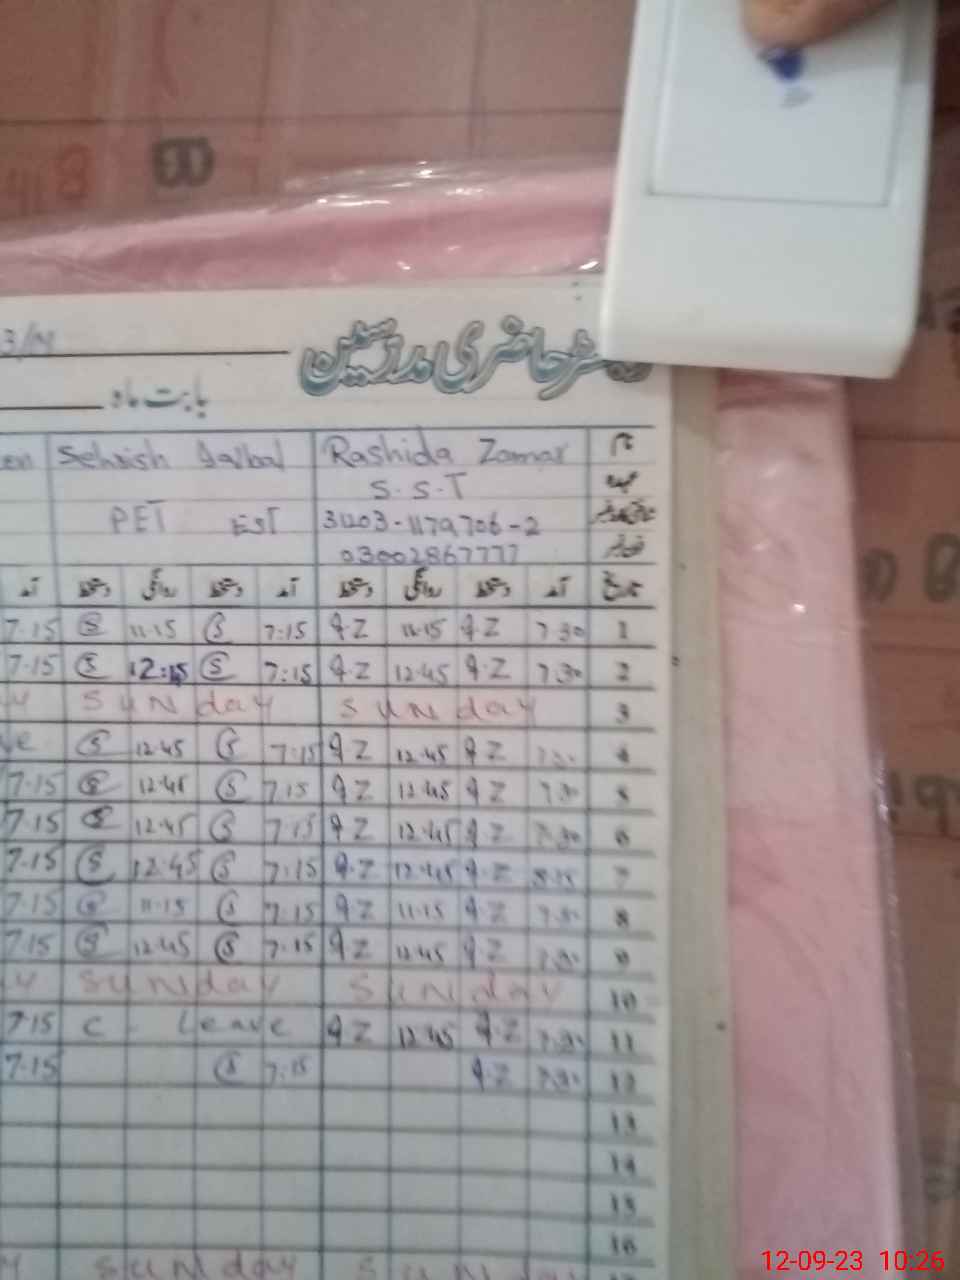 3/M
رجسٹر حاضری مدرسین
بابت ماہ
نام Rashida Zamar Sehrish Iqbal en
عہدہ S.S.T
شناختی کارڈ نمبر 31203-1179706-2 PET EST
فون نمبر 03002867777
تاریخ آمد دستخط روانگی دستخط آمد دستخط روانگی دستخط آمد
7.15 S 11.15 S 7:15 R.Z 11.15 R.Z 7.30 1
7.15 S 12:15 S 7:15 R.Z 12.45 R.Z 7.30 2
y Sunday Sunday 3
ve S 12.45 S 7:15 R.Z 12.45 R.Z 7.30 4
7.15 S 12.45 S 7.15 R.Z 12.45 R.Z 7.30 5
7.15 S 12.45 S 7.15 R.Z 12.45 R.Z 7.30 6
7.15 S 12.45 S 7:15 R.Z 12.45 R.Z 8.15 7
7.15 S 11.15 S 7.15 R.Z 11.15 R.Z 7.30 8
7.15 S 12.45 S 7.15 R.Z 12.45 R.Z 7.30 9
y Sunday Sunday 10
7.15 C. Leave R.Z 12.45 R.Z 7.30 11
7.15 S 7:15 R.Z 7.30 12
13
14
15
16
y Sunday Su
12-09-23 10:26